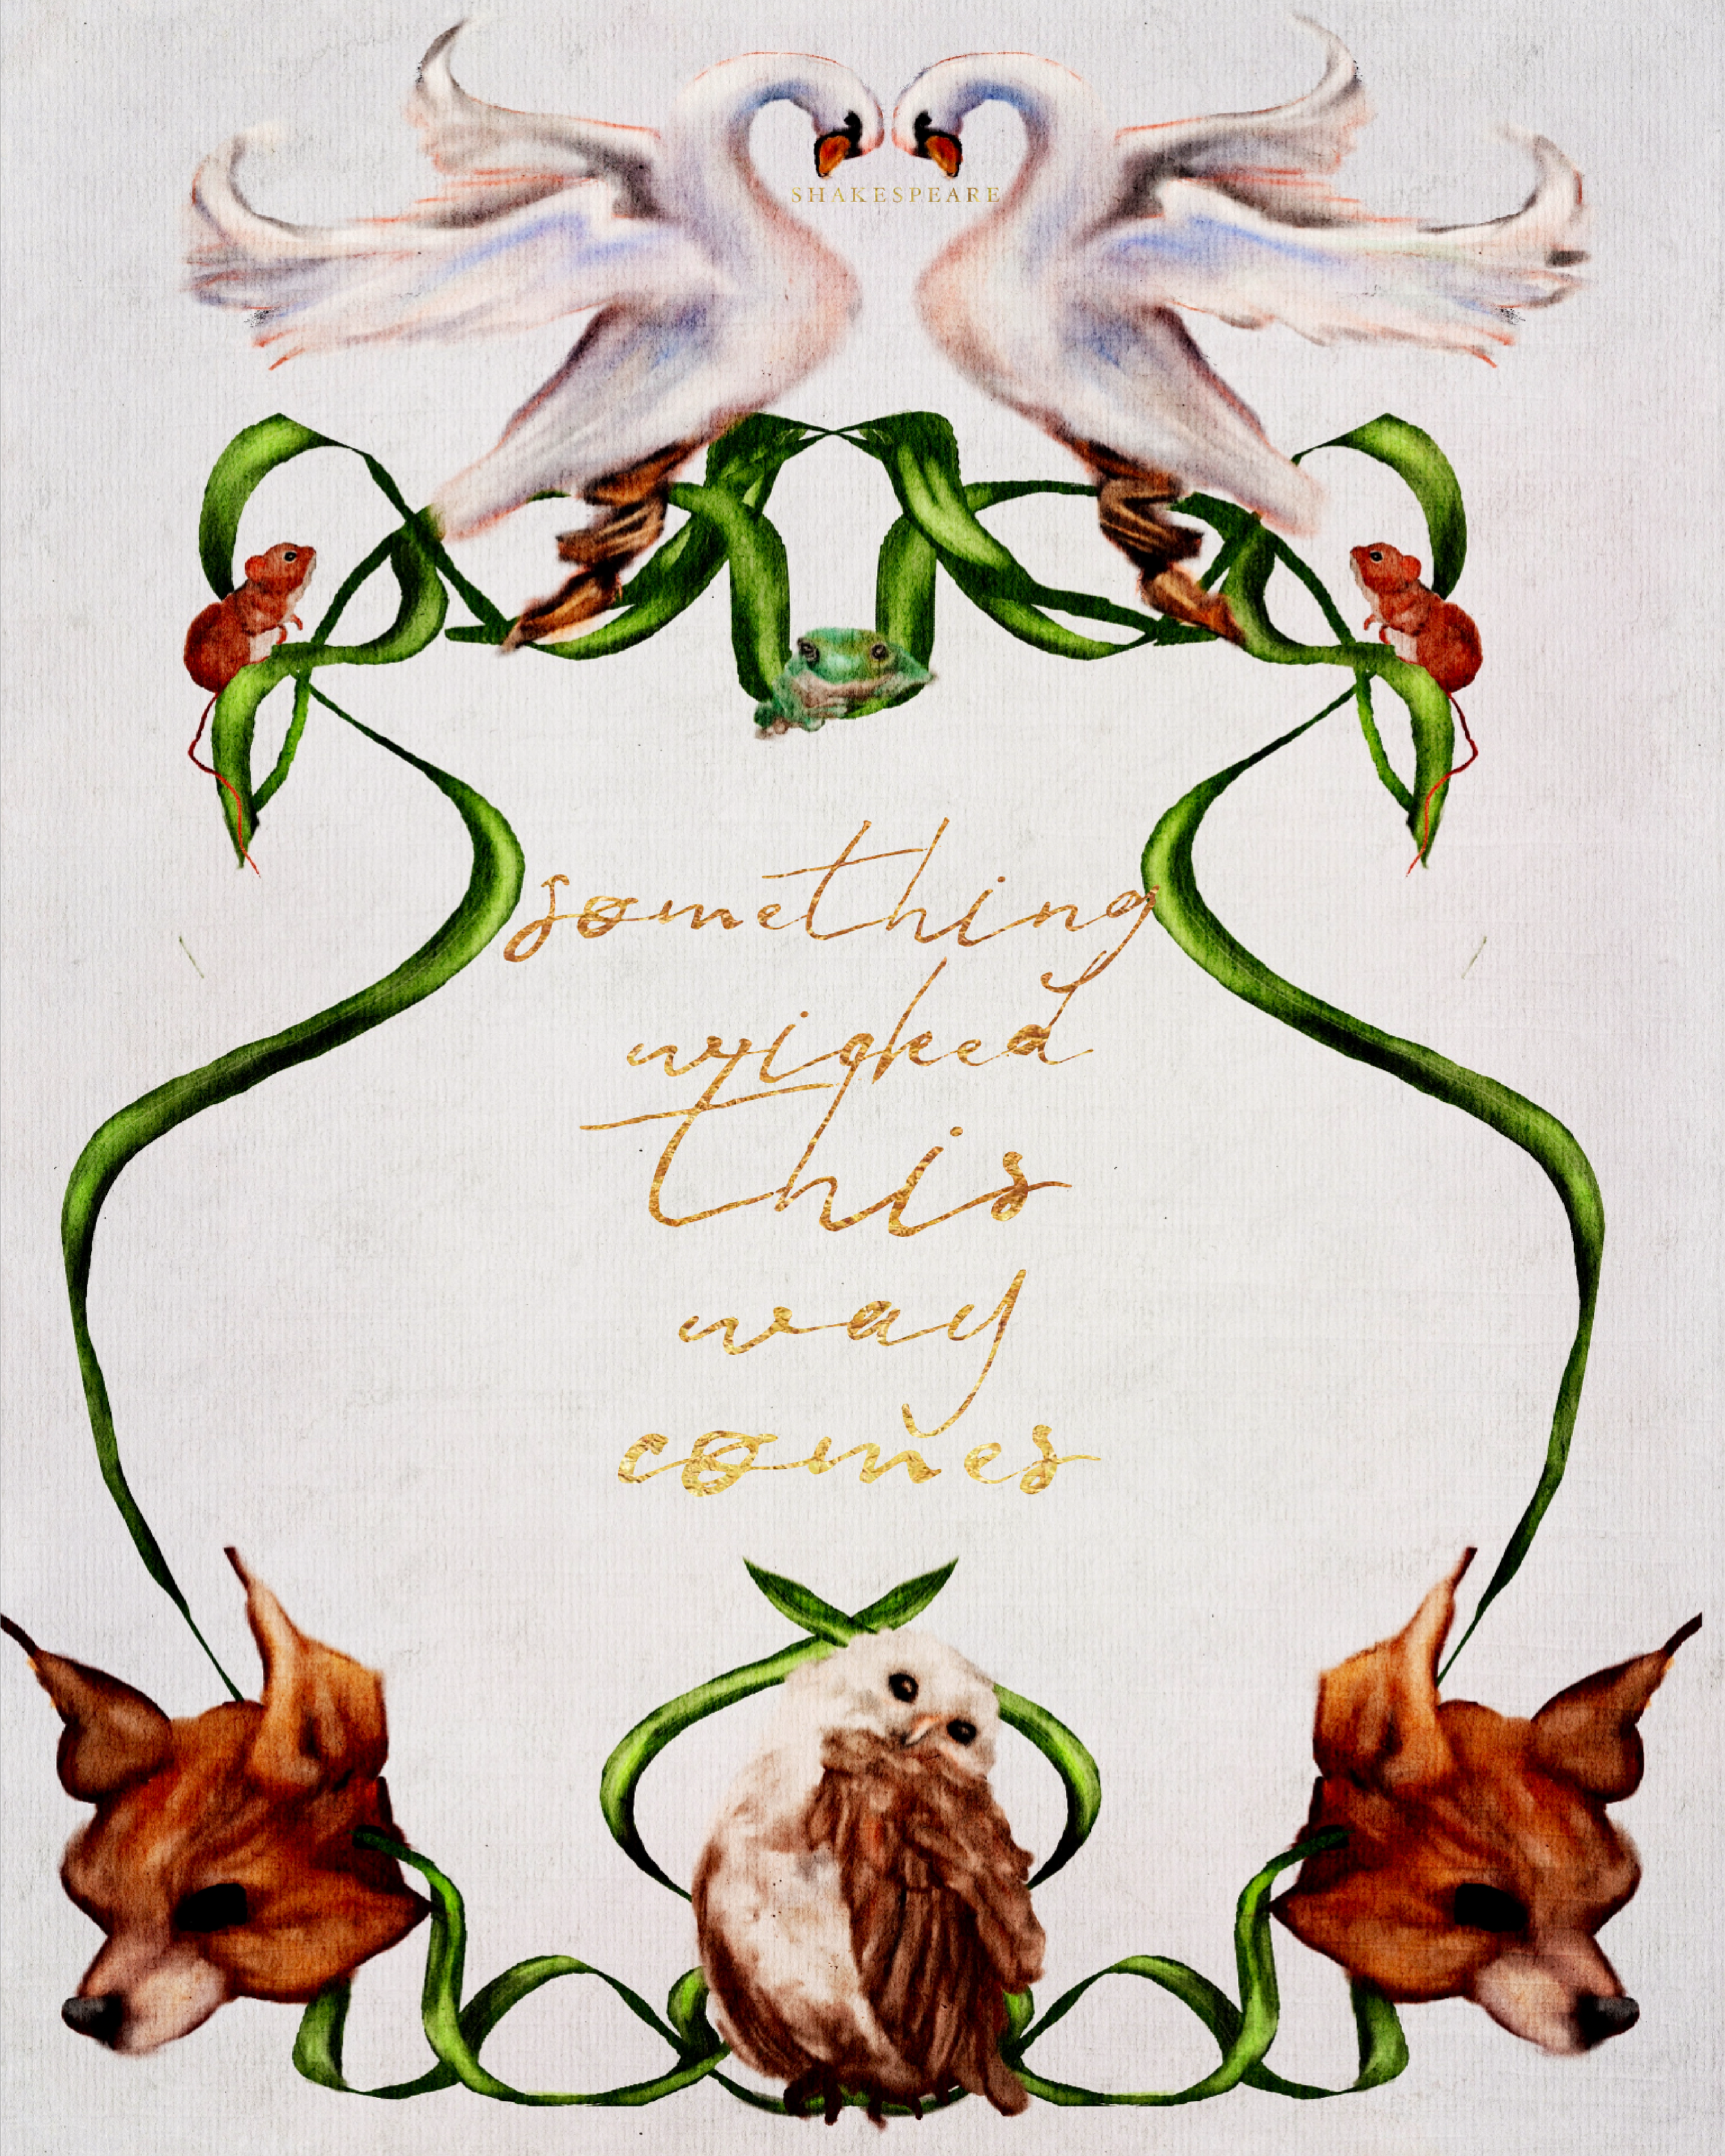 SHAKESPEARE
something
wicked
this
way
comes